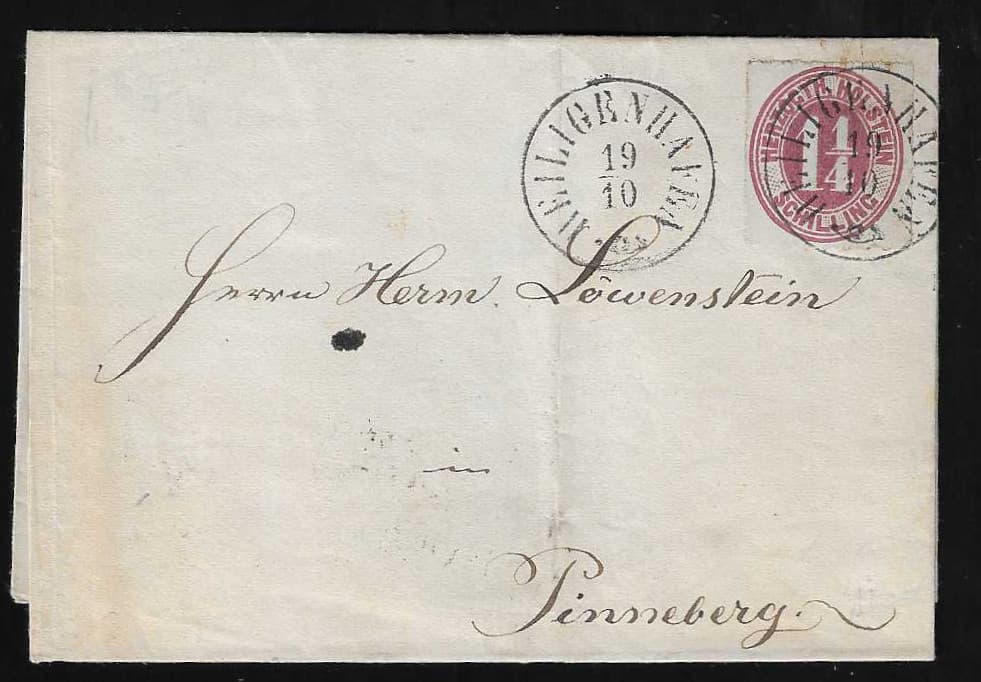 HEILIGENHAFEN
19
10
HERZOGTH. HOLSTEIN
1 1/4
SCHILLING
HEILIGENHAFEN
19
10
Herrn Herm. Löwenstein
in
Pinneberg.